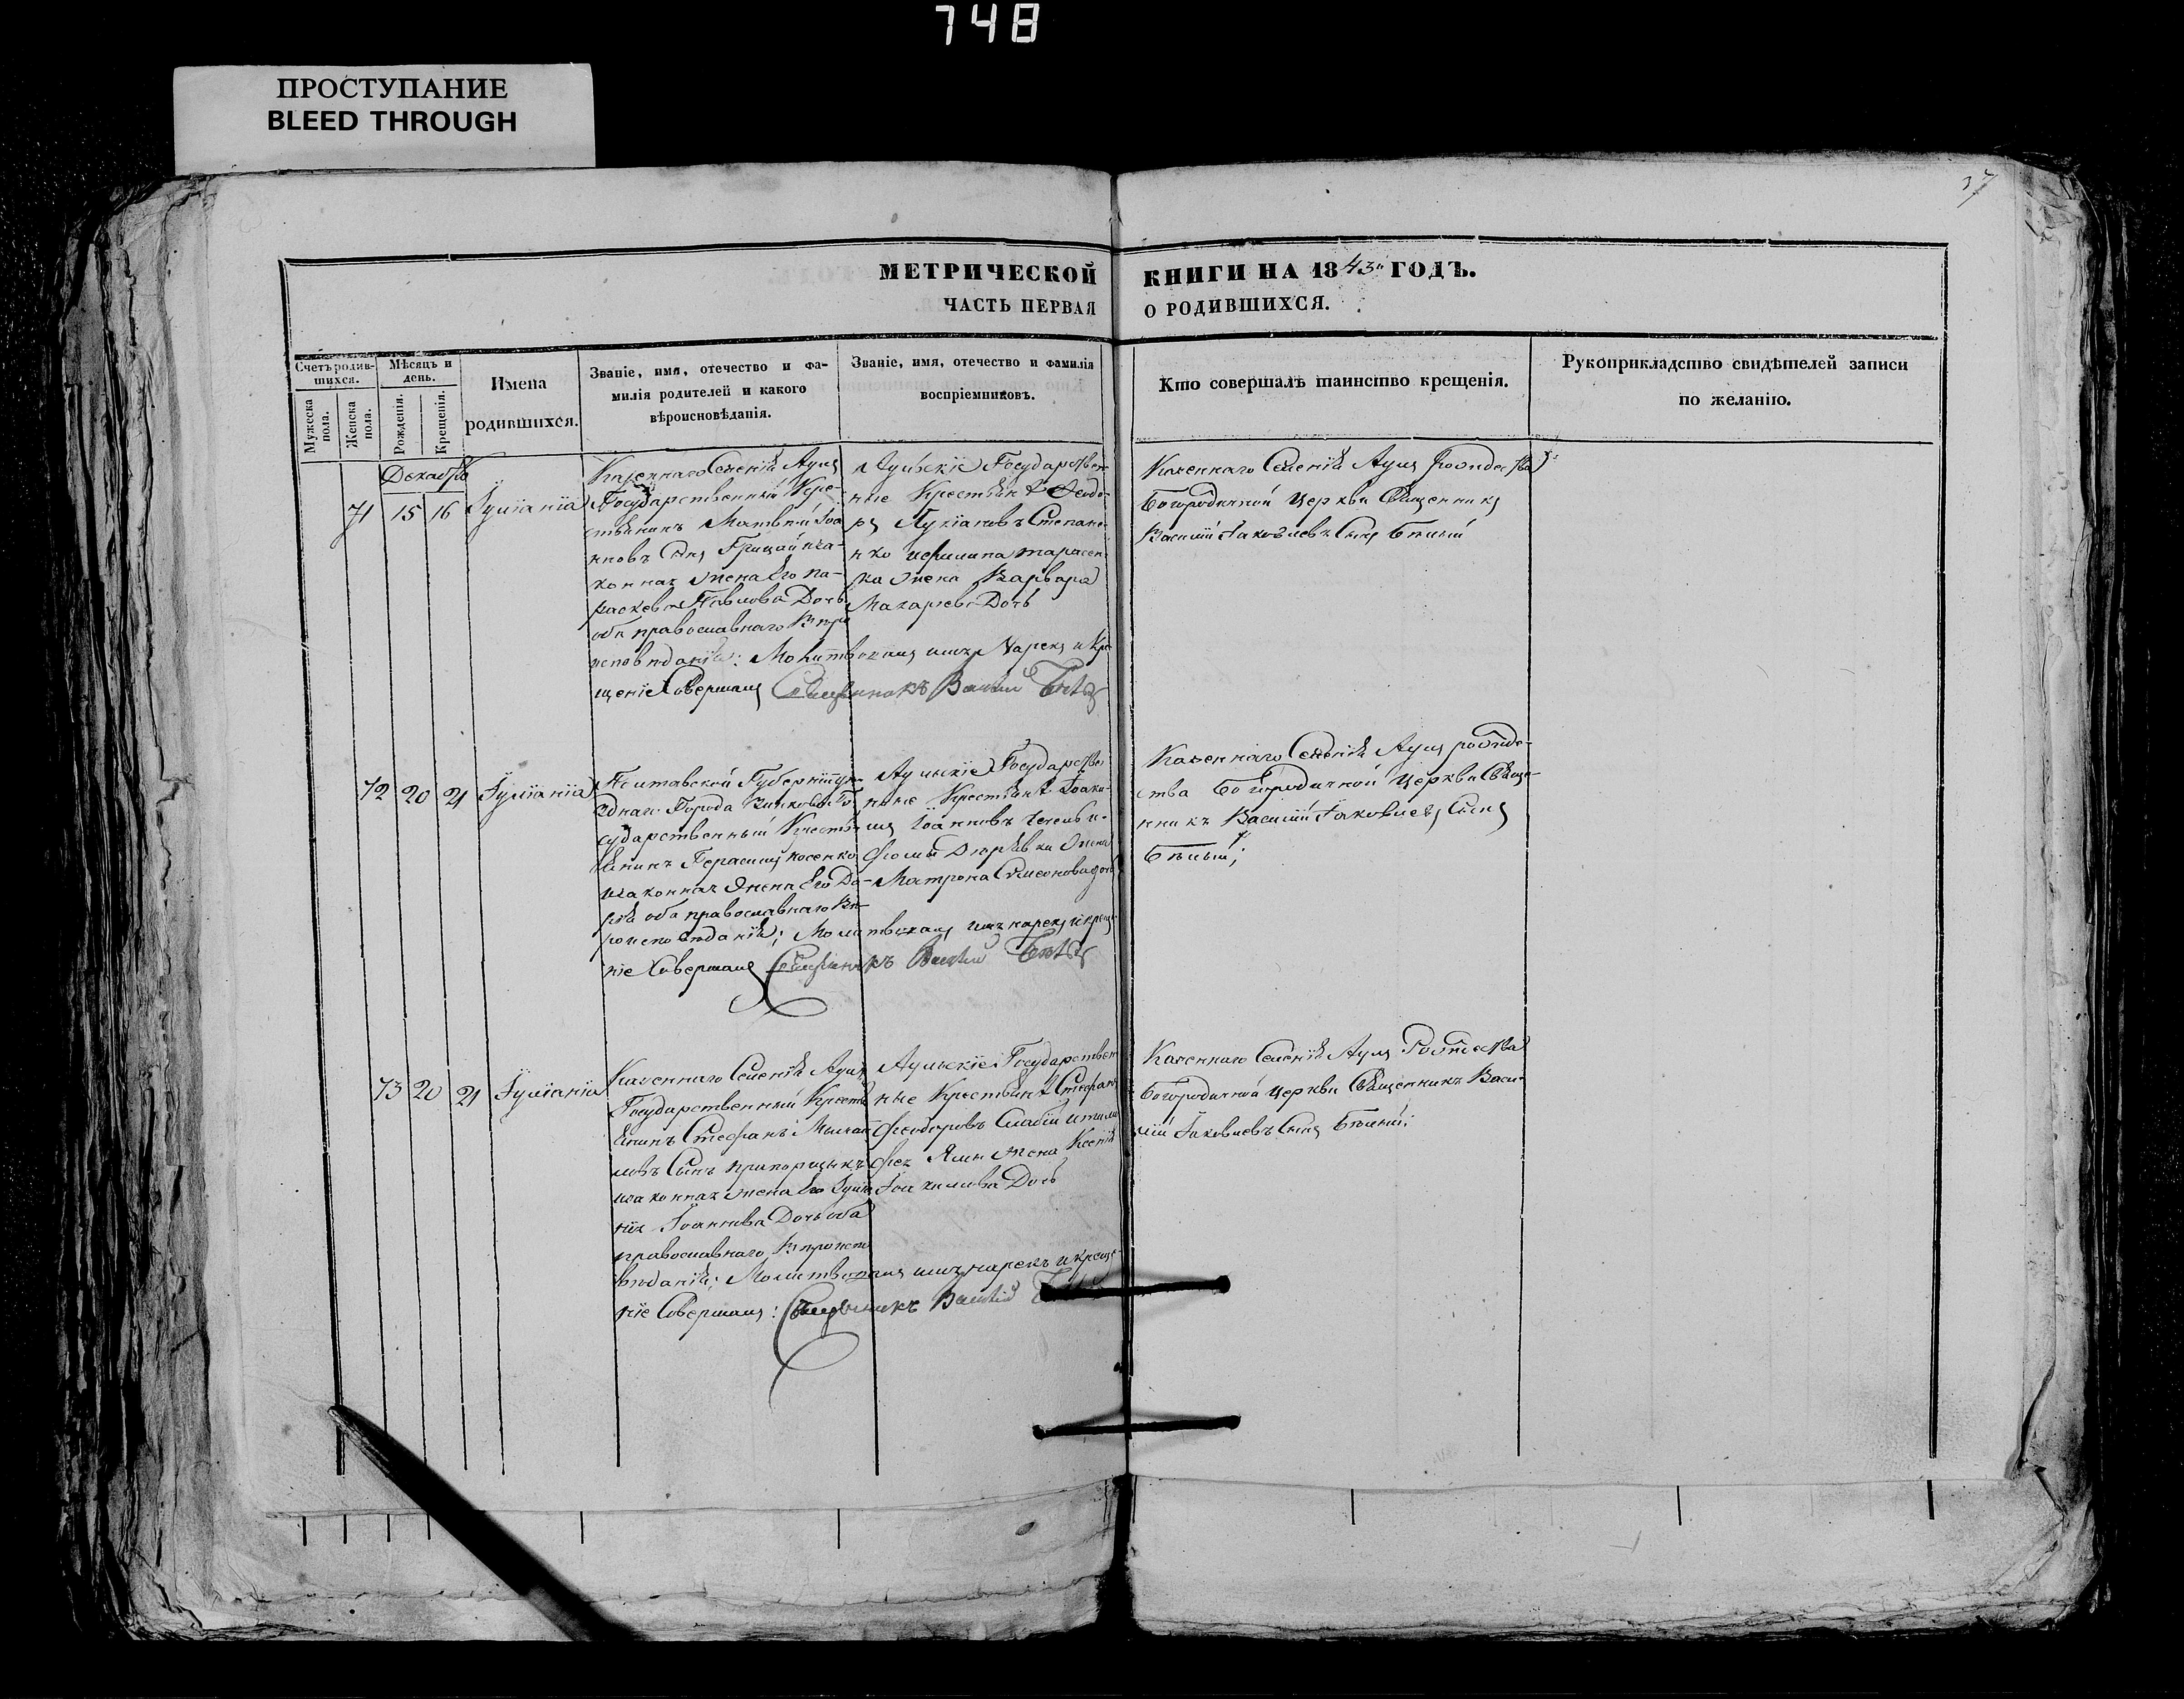 748
ПРОСТУПАНИЕ
BLEED THROUGH
37
МЕТРИЧЕСКОЙ КНИГИ НА 1843й ГОДЪ.
ЧАСТЬ ПЕРВАЯ О РОДИВШИХСЯ.
Счетъ родив-
шихся.
Мужеска
пола.
Женска
пола.
Мѣсяцъ и
день.
Рожденія.
Крещенія.
Имена
родившихся.
Званіе, имя, отечество и фа-
милія родителей и какого
вѣроисновѣданія.
Званіе, имя, отечество и фамилія
воспріемниковъ.
Кто совершалъ таинство крещенія.
Рукоприкладство свидѣтелей записи
по желанію.
Декабрь
71 15 16 Іуліанія
Казеннаго Селенія Аулъ
Государственный Кре-
стьянинъ Матвѣй Іоа
нновъ Сынъ
конная жена Его Па-
раскева Павлова Дочь
оба православнаго Вѣро
исповѣданія: Молитвовалъ имя Нарекъ и Кре
щеніе Совершалъ Священникъ Василій
Аульскіе Государствен
ные Крестьяне Ѳеодо-
ръ Лукіановъ Степане
нко и Филипа Тарасен
ка жена Варвара
Макарьева Дочь
Казеннаго Селенія Аулъ Рождества
Богородичной Церкви Священникъ
Василій Іаковлевъ Сынъ Бѣлый
72 20 21 Іуліанія
Полтавской Губерніи
Города Зинькова Го
сударственный Крестья
нинъ Герасимъ Косенко
законная жена Его Да-
рія оба православнаго Вѣ-
роисповѣданія; Молитвовалъ имя нарекъ и креще
ніе Совершалъ Священникъ Василій
Аульскіе Государствен
ные Крестьяне Іоаки-
мъ Іоанновъ
Ѳомы жена
Матрона Симеонова дочь
Казеннаго Селенія Аулъ рожде-
ства Богородичной Церкви Свяще-
нникъ Василій Іаковлевъ Сынъ
Бѣлый;
73 20 21 Іуліанія
Казеннаго Селенія Аулъ
Государственный Кресть
янинъ Стефанъ
Сынъ
законная жена Его Іуліа
нія Іоаннова Дочь оба
православнаго Вѣроиспо
вѣданія; Молитвовалъ имя нарекъ и креще-
ніе Совершалъ: Священникъ Василій
Аульскіе Государствен
ные Крестьяне Стефанъ
Ѳеодоровъ
жена Ксенія
Іоакимова Дочь
Казеннаго Селенія Аулъ Рождества
Богородичной Церкви Священникъ Васи-
лій Іаковлевъ Сынъ Бѣлый;